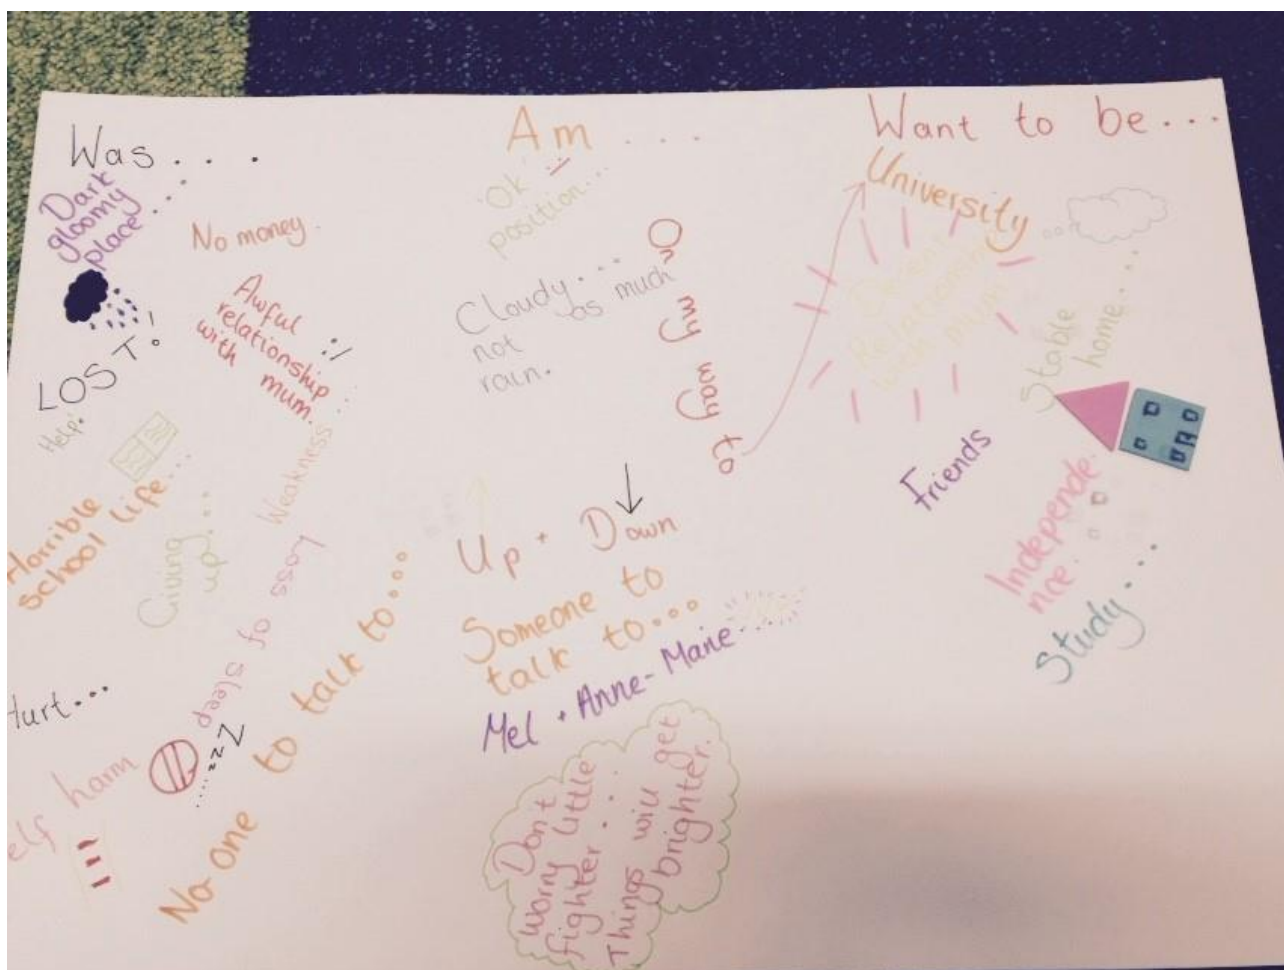 Was....
Dark
gloomy
place....
No money.
Awful
relationship
with mum.
:/
LOST!
Help!
Horrible
school life...
Giving
up...
Weakness...
Loss of sleep
....zzZ
No one to talk to...
Hurt...
elf harm
Am....
'Ok'
position...
Cloudy....
not as much
rain.
On my way to
Up + Down
Someone to
talk to...
Mel + Anne-Marie....
Don't
worry little
fighter...
Things will get
brighter.
Want to be...
University
Decent
Relationship
with mum
Stable
home....
Friends
Independe
nce.
Study....